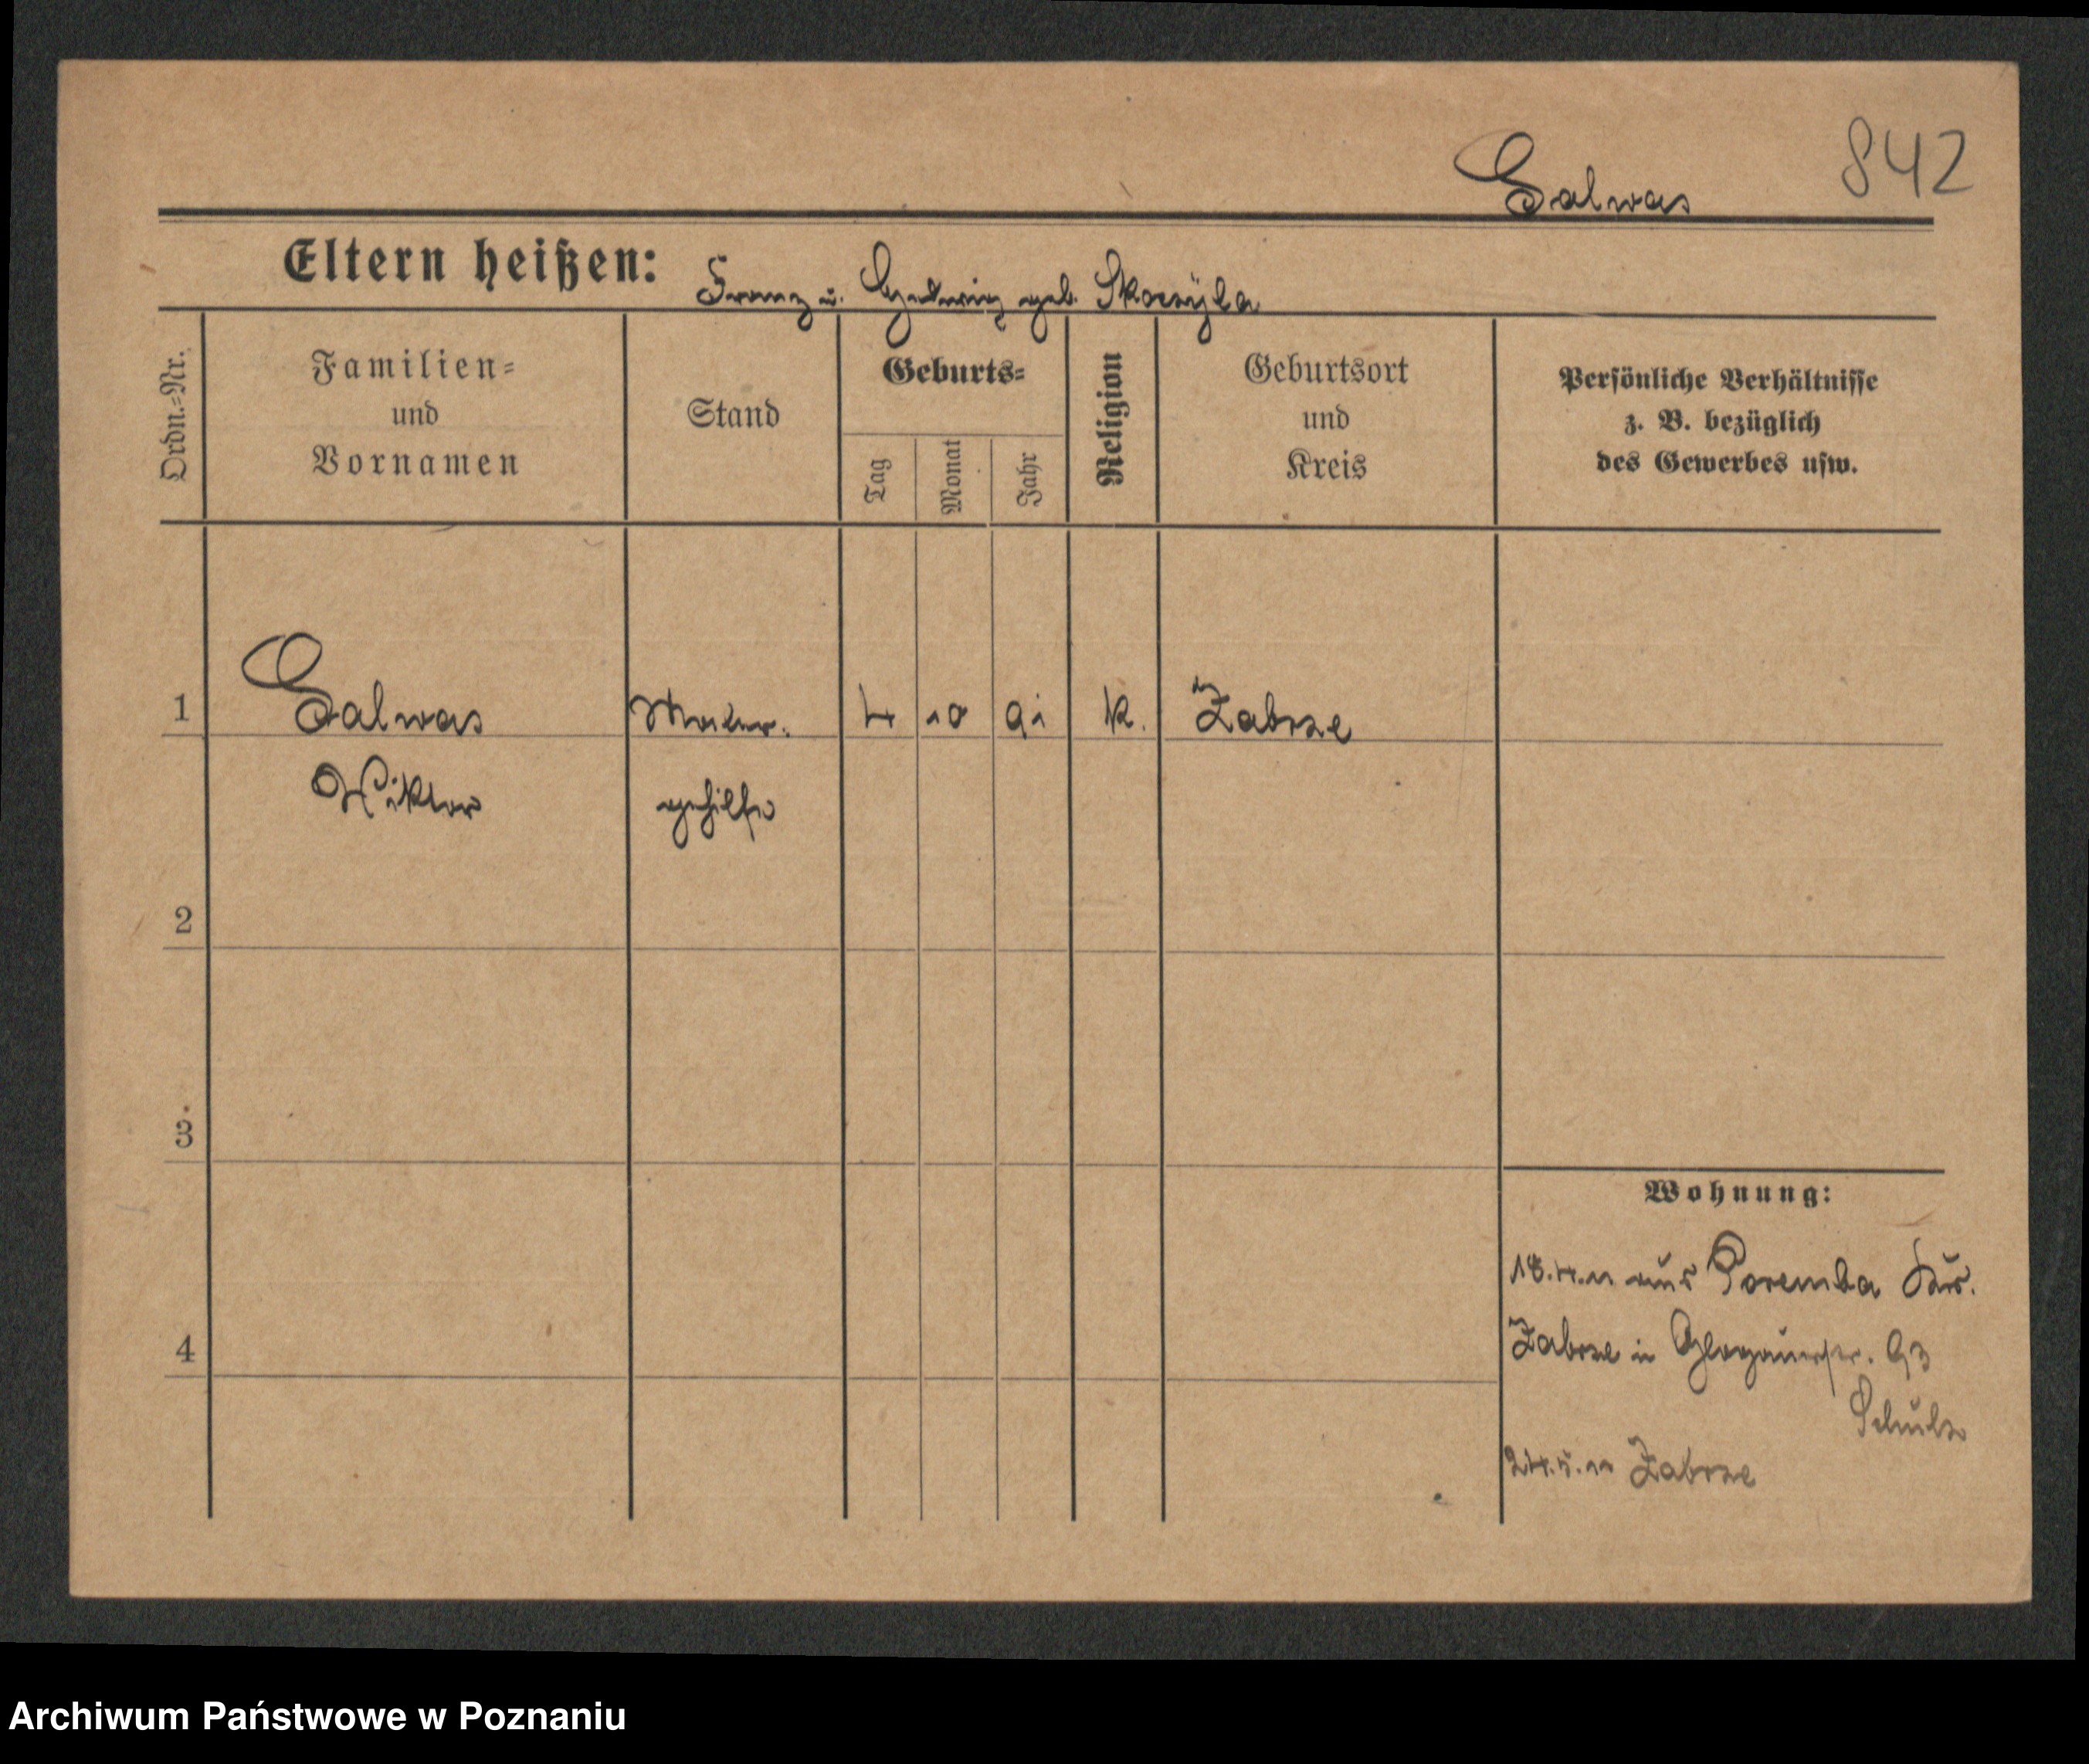 842
Galwas
Eltern heißen: Franz u. Hedwig geb. Skorzyka
Ordn.=Nr.
Familien=
und
Vornamen
Stand
Geburts=
Tag
Monat
Jahr
Religion
Geburtsort
und
Kreis
Persönliche Verhältnisse
z. B. bezüglich
des Gewerbes usw.
1 Galwas Maler. 4 10 91 k. Zabrze
Viktor gehilfe
2
3
4
Wohnung:
18.4.11 aus Poremba Krs.
Zabrze in Glogauerstr. 93
Schulz
24.5.11 Zabrze
Archiwum Państwowe w Poznaniu